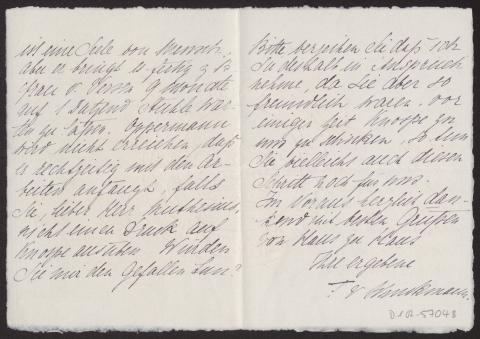 ist eine Seele von Mensch,
aber er bringt es fertig z. B.
Frau v. 9 Monate
auf 1 Dutzend Stühle war-
ten zu lassen. Oppermann
wird nicht erreichen, daß
er rechtzeitig mit den Ar-
beiten anfängt, falls
Sie, lieber Herr Muthesius,
nicht einen Druck auf
Knoppe ausüben. Würden
Sie mir den Gefallen tun?
Bitte verzeihen Sie daß ich
Sie deshalb in Anspruch
nehme, da Sie aber so
freundlich waren, vor
einiger Zeit Knoppe zu
uns zu schicken, so tun
Sie vielleicht auch diesen
Schritt noch für uns.
Im voraus herzlich dan-
kend mit besten Grüßen
von Haus zu Haus
Ihre ergebene
D.A.-57048